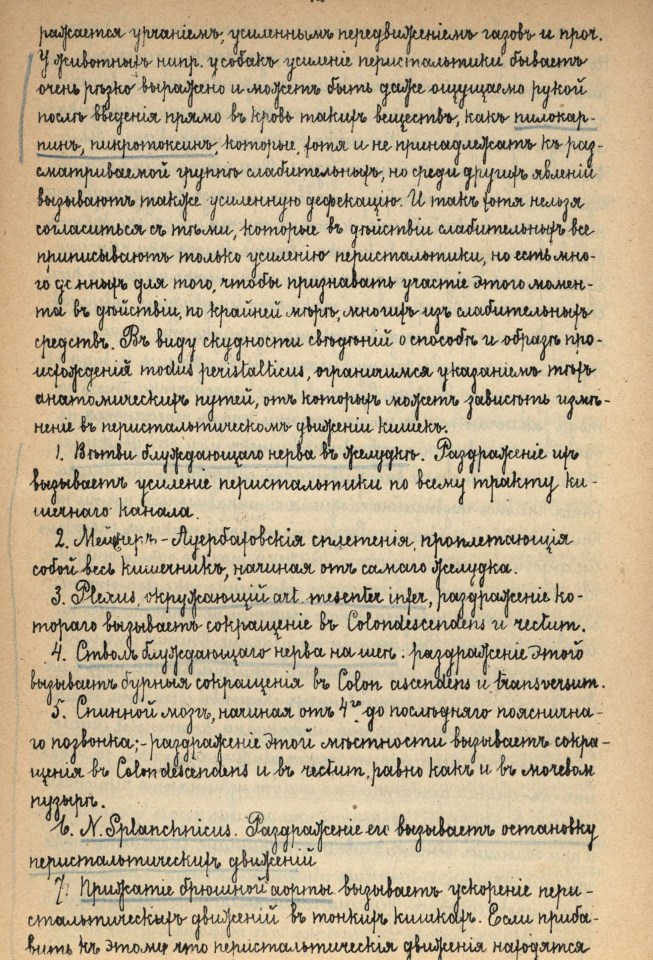 ражается урчаніемъ, усиленнымъ передвиженіемъ газовъ и проч.
У животныхъ напр. у собакъ усиленіе перистальтики бываетъ
очень рѣзко выражено и можетъ быть даже ощущаемо рукой
послѣ введенія прямо въ кровь такихъ веществъ, какъ пилокар-
пинъ, пикротоксинъ, которые, хотя и не принадлежатъ къ раз-
сматриваемой группѣ слабительныхъ, но среди другихъ явленій
вызываютъ также усиленную дефекацію. И такъ хотя нельзя
согласиться съ тѣми, которые въ дѣйствіи слабительныхъ все
приписываютъ только усиленію перистальтики, но есть мно-
го данныхъ для того, чтобы признавать участіе этого момен-
та въ дѣйствіи, по крайней мѣрѣ, многихъ изъ слабительныхъ
средствъ. Въ виду скудности свѣдѣній о способѣ и образѣ про-
исхожденія modus peristalticus, ограничимся указаніемъ тѣхъ
анатомическихъ путей, отъ которыхъ можетъ зависѣть измѣ-
неніе въ перистальтическомъ движеніи кишекъ.
1. Вѣтви блуждающаго нерва въ желудкѣ. Раздраженіе ихъ
вызываетъ усиленіе перистальтики по всему тракту ки-
шечнаго канала.
2. Мейснеръ-Ауербаховскія сплетенія, проплетающія
собой весь кишечникъ, начиная отъ самаго желудка.
3. Plexus, окружающій art. mesenter infer, раздраженіе ко-
тораго вызываетъ сокращеніе въ Colon descendens и rectum.
4. Стволъ блуждающаго нерва на шеѣ. раздраженіе этого
вызываетъ бурныя сокращенія въ Colon ascendens и transversum.
5. Спинной мозгъ, начиная отъ 4го до послѣдняго поясничнa-
го позвонка;- раздраженіе этой мѣстности вызываетъ сокра-
щенія въ Colon descendens и въ rectum, равно какъ и въ мочевом
пузырѣ.
6. N. Splanchnicus. Раздраженіе его вызываетъ остановку
перистальтическихъ движеній
7. Прижатіе брюшной аорты вызываетъ ускореніе пери-
стальтическихъ движеній въ тонкихъ кишкахъ. Если приба-
вить къ этому что перистальтическія движенія находятся